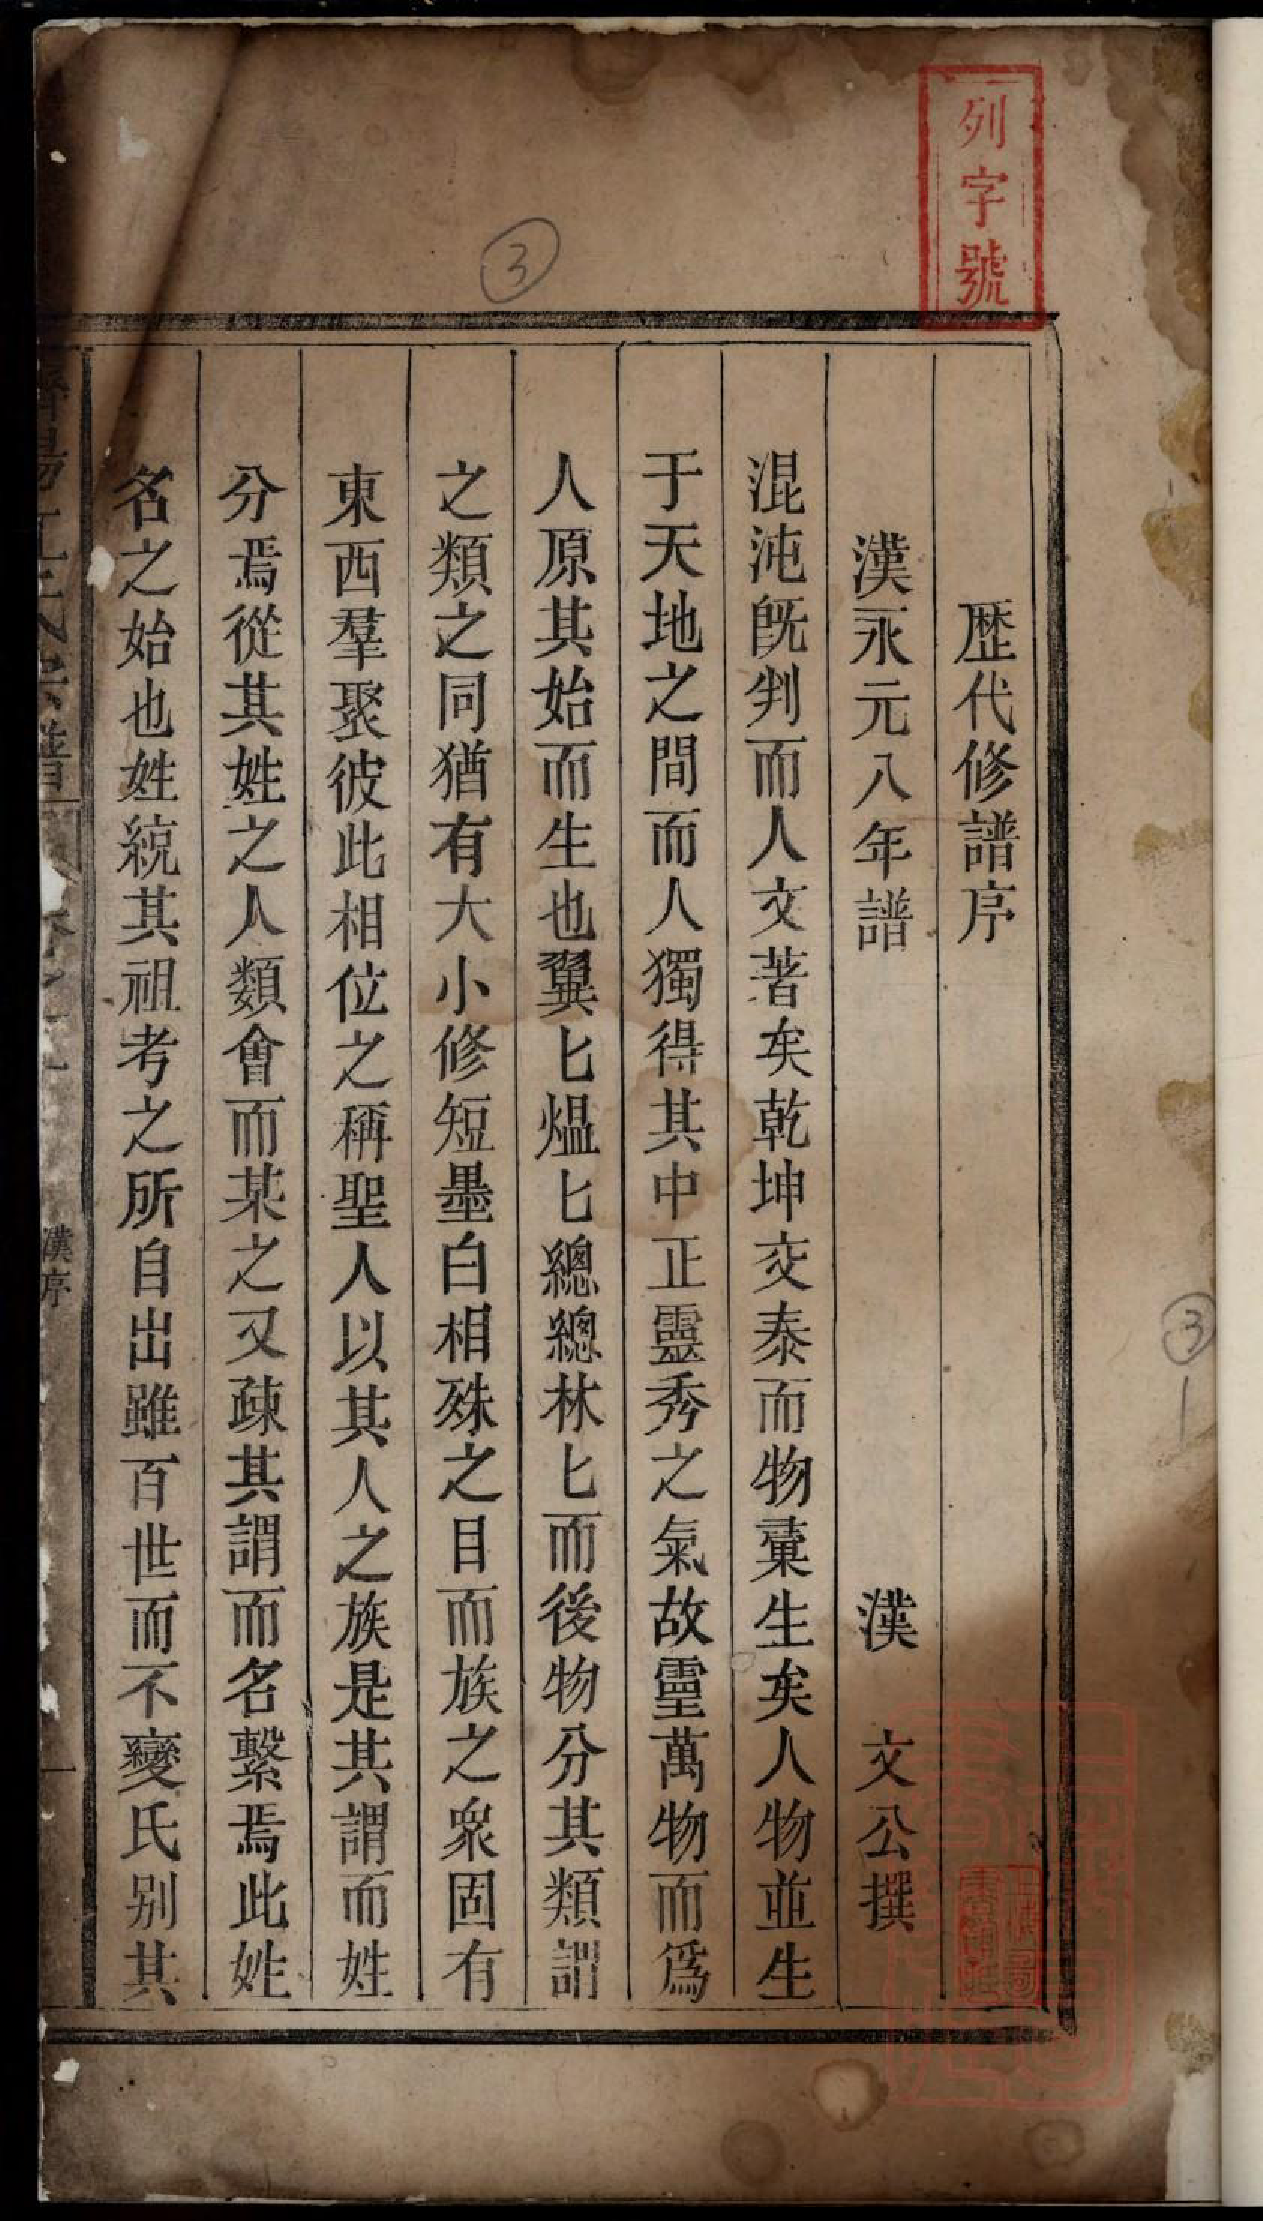 列字號
③
歷代修譜序
漢永元八年譜 漢 文公撰
混沌旣判而人文著矣乾坤交泰而物彙生矣人物並生
于天地之間而人獨得其中正靈秀之氣故靈萬物而爲
人原其始而生也翼匕熅匕總總林匕而後物分其類謂
之類之同猶有大小修短墨白相殊之目而族之衆固有
東西羣聚彼此相位之稱聖人以其人之族是其謂而姓
分焉從其姓之人類會而某之又疎其謂而名繫焉此姓
名之始也姓統其祖考之所自出雖百世而不變氏别其
濟陽江氏宗譜 漢序 一
③
1